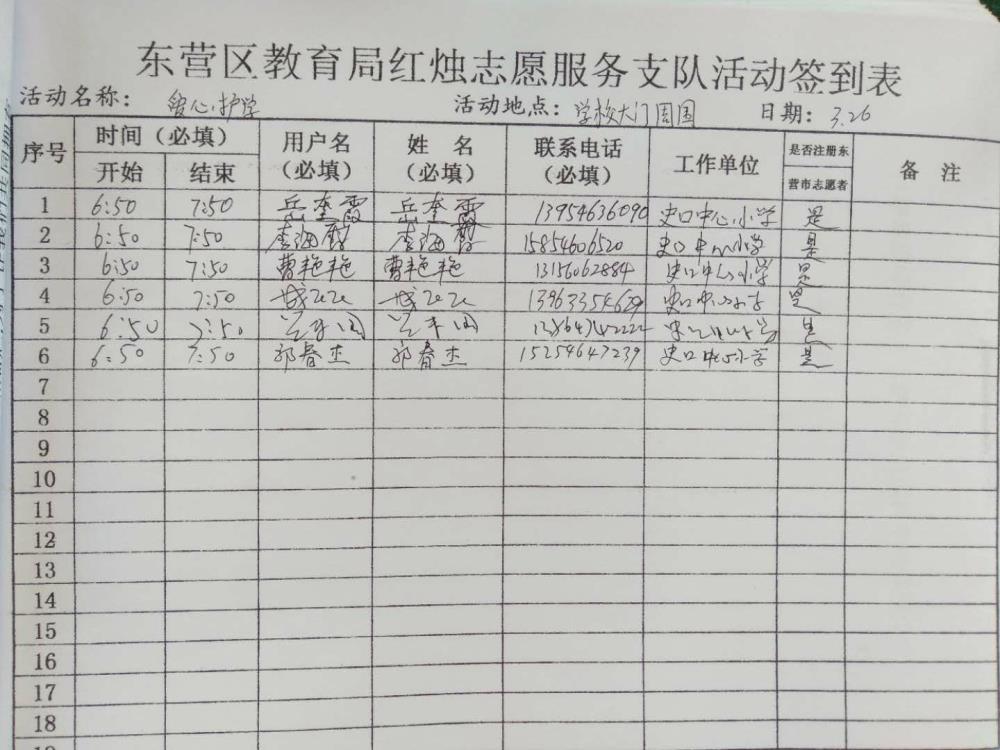 东营区教育局红烛志愿服务支队活动签到表
活动名称： 爱心护学 活动地点：学校大门周围 日期：3.26
序号 时间（必填） 用户名（必填） 姓名（必填） 联系电话（必填） 工作单位 是否注册东营市志愿者 备注
开始 结束
1 6:50 7:50 岳奎霞 岳奎霞 13954636090 史口中心小学 是
2 6:50 7:50 李海 李海 15854606520 史口中心小学 是
3 6:50 7:50 曹艳艳 曹艳艳 13156062884 史口中心小学 是
4 6:50 7:50 史口中心小学 是
5 6:50 7:50 史口中心小学 是
6 6:50 7:50 郭春杰 郭春杰 15254647239 史口中心小学 是
7
8
9
10
11
12
13
14
15
16
17
18